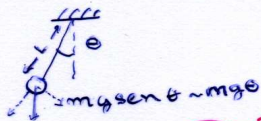 L
θ
mg sen θ ~ mg θ